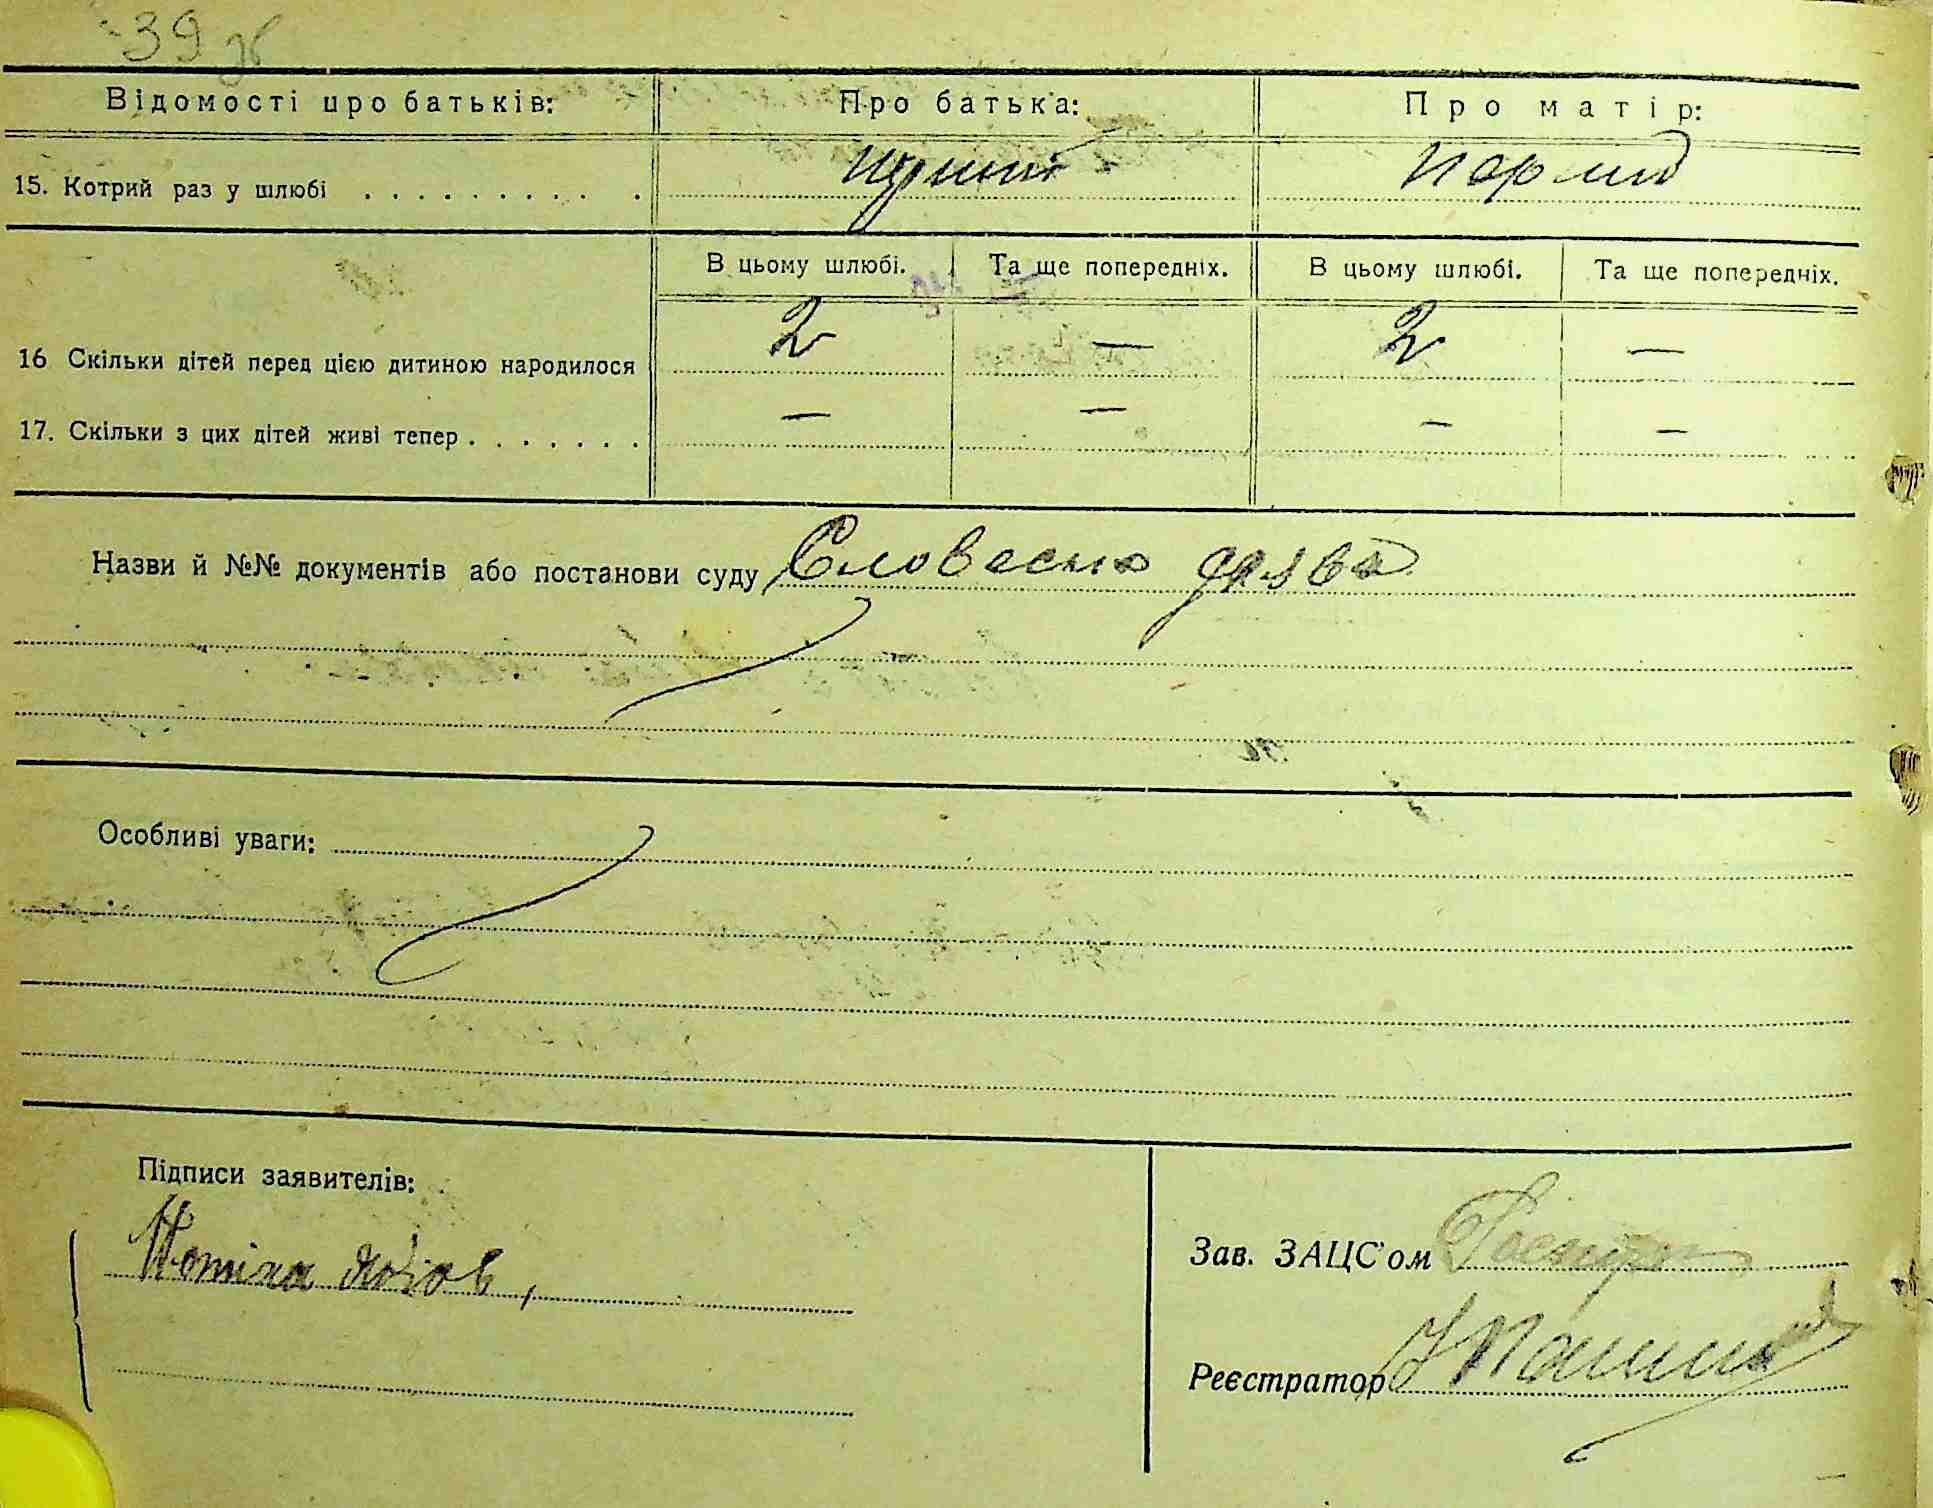 39 зв
Відомості про батьків: Про батька: Про матір:
15. Котрий раз у шлюбі . . . . . . . . . . перший перший
В цьому шлюбі. Та ще попередніх. В цьому шлюбі. Та ще попередніх.
16 Скільки дітей перед цією дитиною народилося 2 — 2 —
17. Скільки з цих дітей живі тепер . . . . . . . — — — —
Назви й №№ документів або постанови суду Словесна заява
Особливі уваги:
Підписи заявителів:
Зав. ЗАЦС'ом
Реєстратор